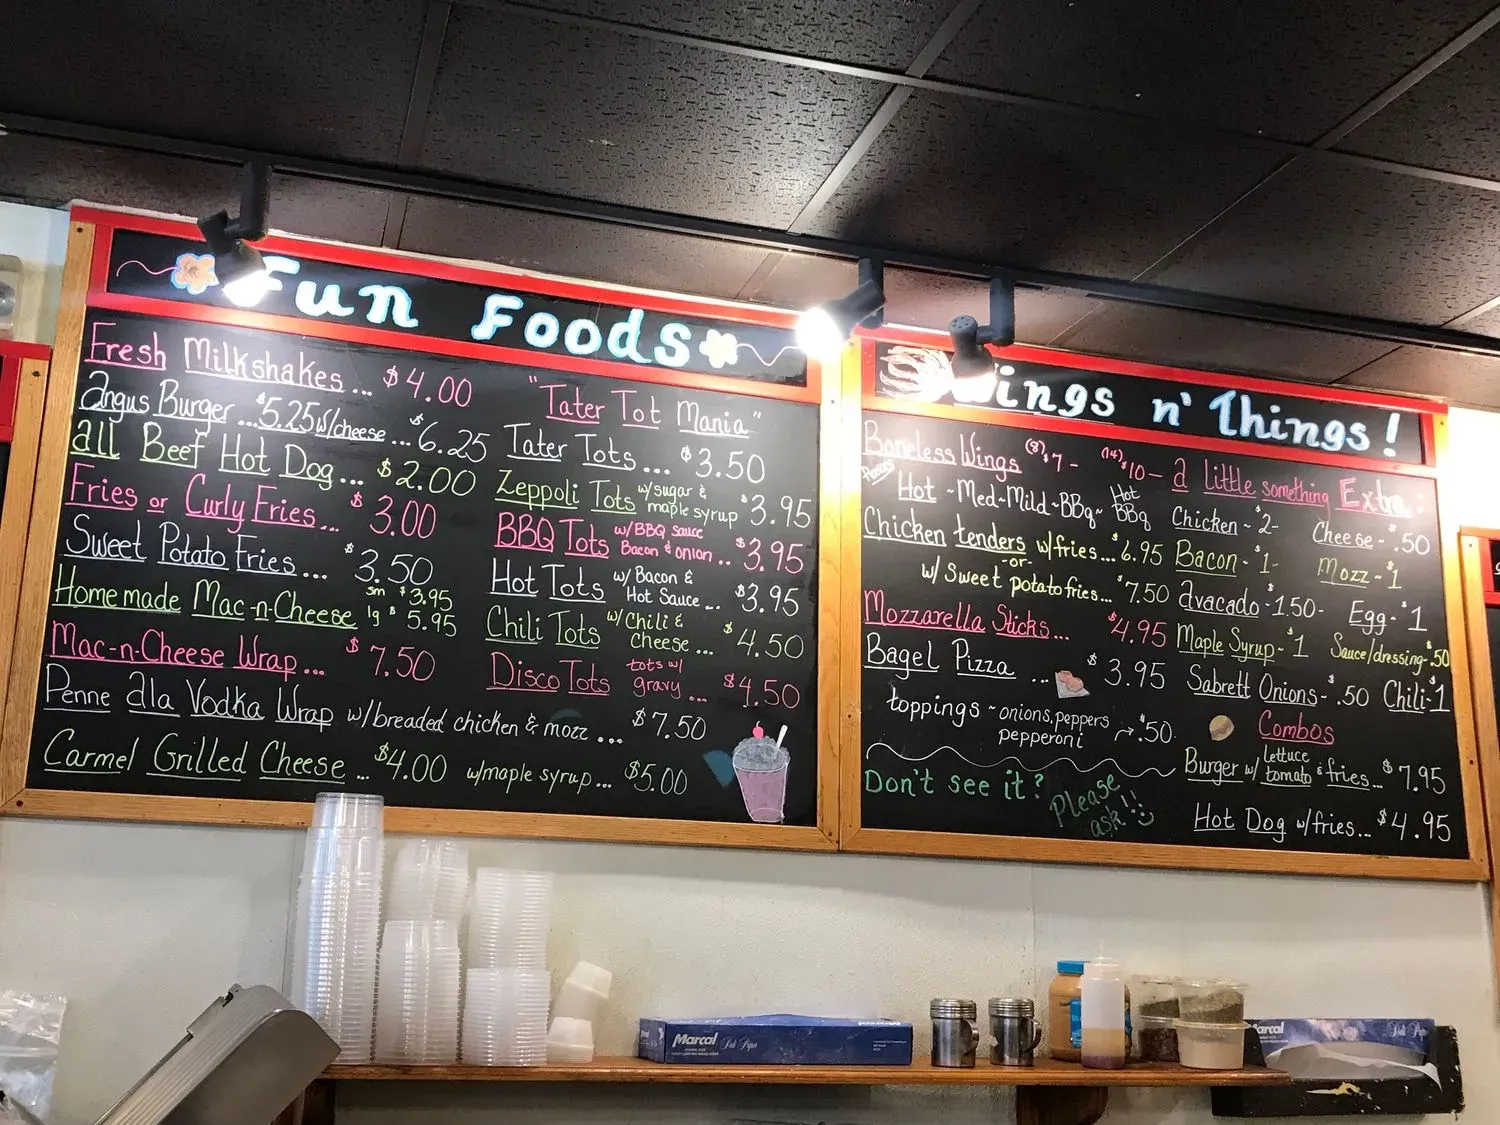 Fun Foods
Fresh Milkshakes... $4.00
Angus Burger ...$5.25 w/cheese ... $6.25
all Beef Hot Dog... $2.00
Fries or Curly Fries... $3.00
Sweet Potato Fries... $3.50
Homemade Mac-n-Cheese sm $3.95
lg $5.95
Mac-n-Cheese Wrap... $7.50
Penne ala Vodka Wrap w/breaded chicken & mozz ... $7.50
Carmel Grilled Cheese ... $4.00 w/maple syrup... $5.00
"Tater Tot Mania"
Tater Tots... $3.50
Zeppoli Tots w/sugar & maple syrup $3.95
BBQ Tots w/BBQ sauce Bacon & onion.. $3.95
Hot Tots w/ Bacon & Hot Sauce... $3.95
Chili Tots w/Chili & Cheese... $4.50
Disco Tots tots w/ gravy ... $4.50
Wings n' Things!
Boneless Wings (8) $7 - (14) $10 -
flavors Hot ~ Med ~ Mild ~ BBq ~ Hot BBq
Chicken tenders w/fries... $6.95
-or-
w/ Sweet potato fries... $7.50
Mozzarella Sticks... $4.95
Bagel Pizza ... $3.95
toppings ~ onions, peppers
pepperoni → $.50
Don't see it? Please ask!!
a Little something Extra:
Chicken ~ $2- Cheese - $.50
Bacon - $1- Mozz - $1
avacado - $1.50- Egg - $1
Maple Syrup - $1 Sauce/dressing - $.50
Sabrett Onions - $.50 Chili - $1
Combos
Burger w/ lettuce tomato & fries... $7.95
Hot Dog w/fries... $4.95
Marcal Deli Paper
Marcal